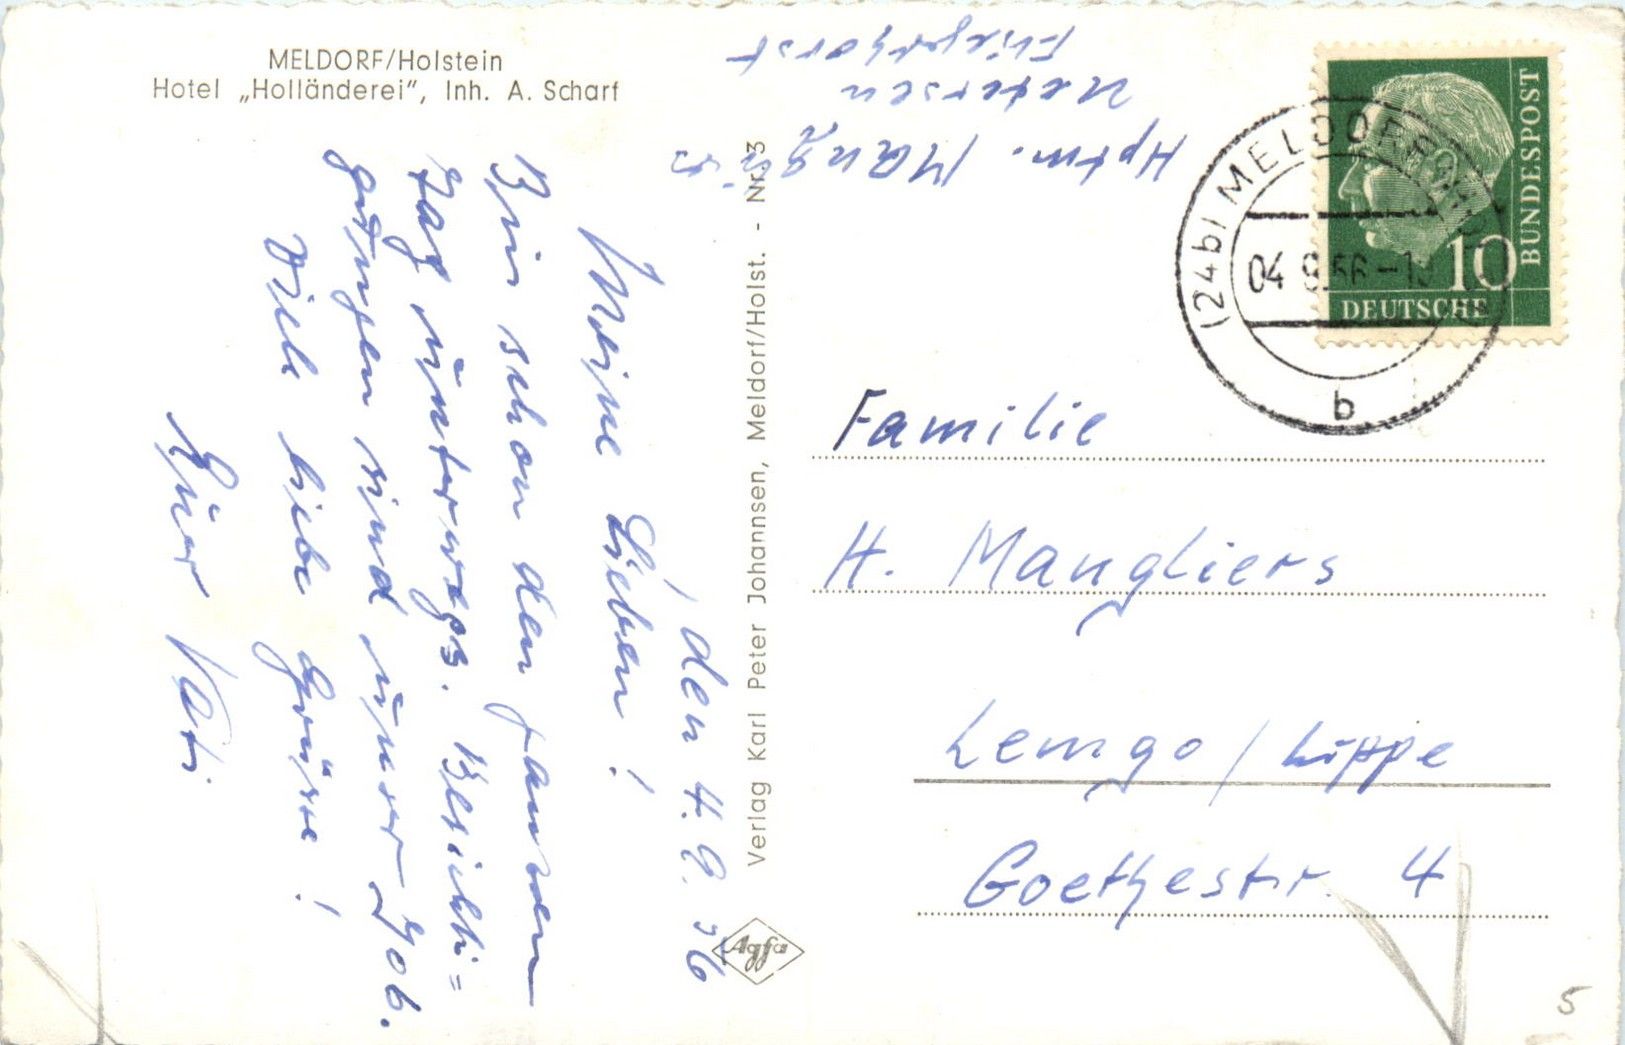 MELDORF/Holstein
Hotel „Holländerei“, Inh. A. Scharf
Hptm. Mang
Uetersen
Fliegerhorst
, den 4. 9. 56
Meine Lieben!
Bin schon den ganzen
Tag unterwegs. Besichti=
gungen sind unser Job.
Viele liebe Grüße!
Euer Vati
Verlag Karl Peter Johannsen, Meldorf/Holst. - Nr. 3
Agfa
DEUTSCHE
BUNDESPOST
10
(24b) MELDORF
04 9.56-1
b
Familie
H. Mangliers
Lemgo / Lippe
Goethestr. 4
5